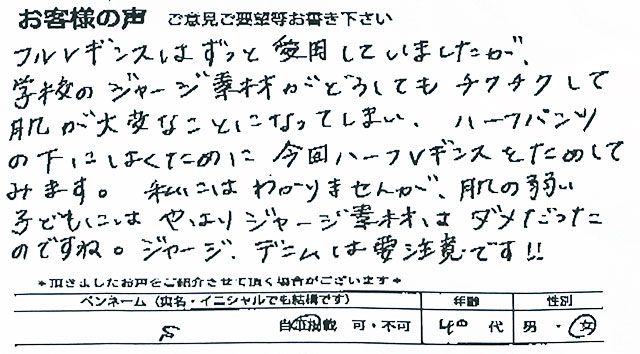 お客様の声 ご意見ご要望等お書き下さい
フルレギンスはずっと愛用していましたが、
学校のジャージ素材がどうしてもチクチクして
肌が大変なことになってしまい、ハーフパンツ
の下にはくために今回ハーフレギンスをためして
みます。私にはわかりませんが、肌の弱い
子どもにはやはりジャージ素材はダメだった
のですね。ジャージ、デニムは要注意です!!
*頂きましたお声をご紹介させて頂く場合がございます*
ペンネーム(匿名・イニシャルでも結構です) 年齢 性別
自筆掲載 可・不可 40 代 男・女